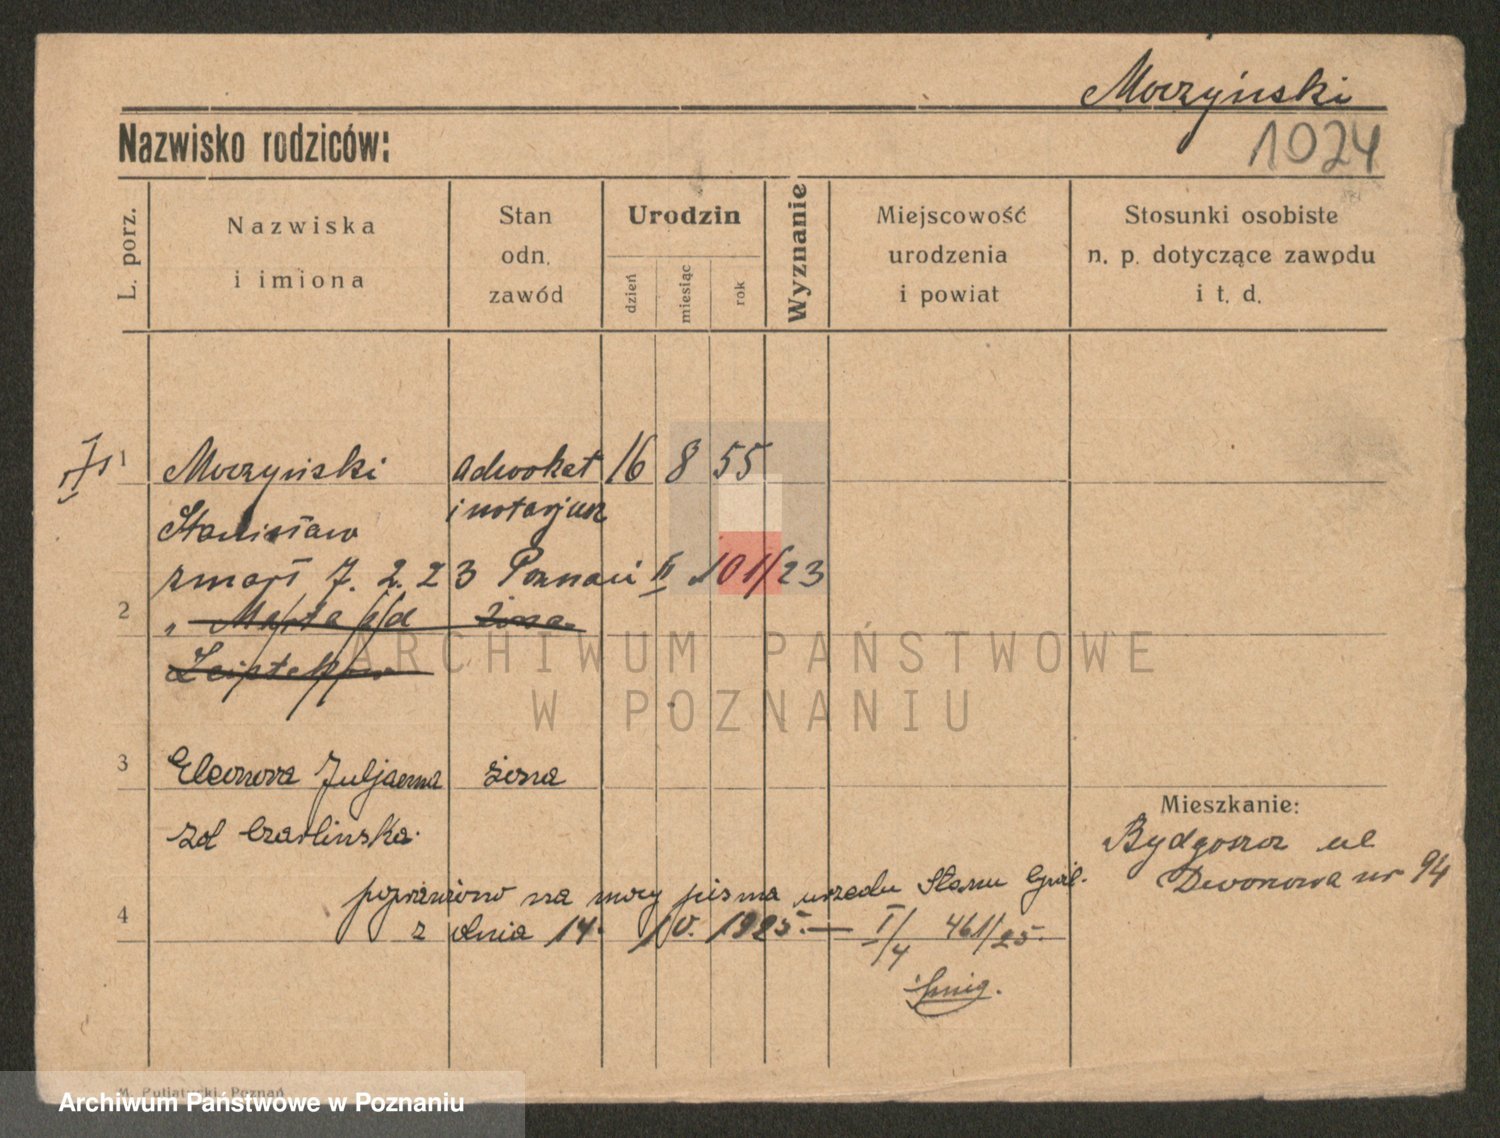 Moczyński
Nazwisko rodziców:
1024
L. porz.
Nazwiska
i imiona
Stan
odn.
zawód
Urodzin
dzień
miesiąc
rok
Wyznanie
Miejscowość
urodzenia
i powiat
Stosunki osobiste
n. p. dotyczące zawodu
i t. d.
1 Moczyński adwokat 16 8 55
Stanisław i notarjusz
zmarł 7. 2. 23 Poznań II 101/23
2 " Marta żona
3 Eleonora Juljanna żona
Czarlinska.
Mieszkanie:
Bydgoszcz ul
Dworcowa nr 94
poprawiono na mocy pisma urzędu Stanu Cywil.
4 z dnia 14. IV. 1925. — I/4 461/25.
ARCHIWUM PAŃSTWOWE
W POZNANIU
M. Putiatycki, Poznań
Archiwum Państwowe w Poznaniu